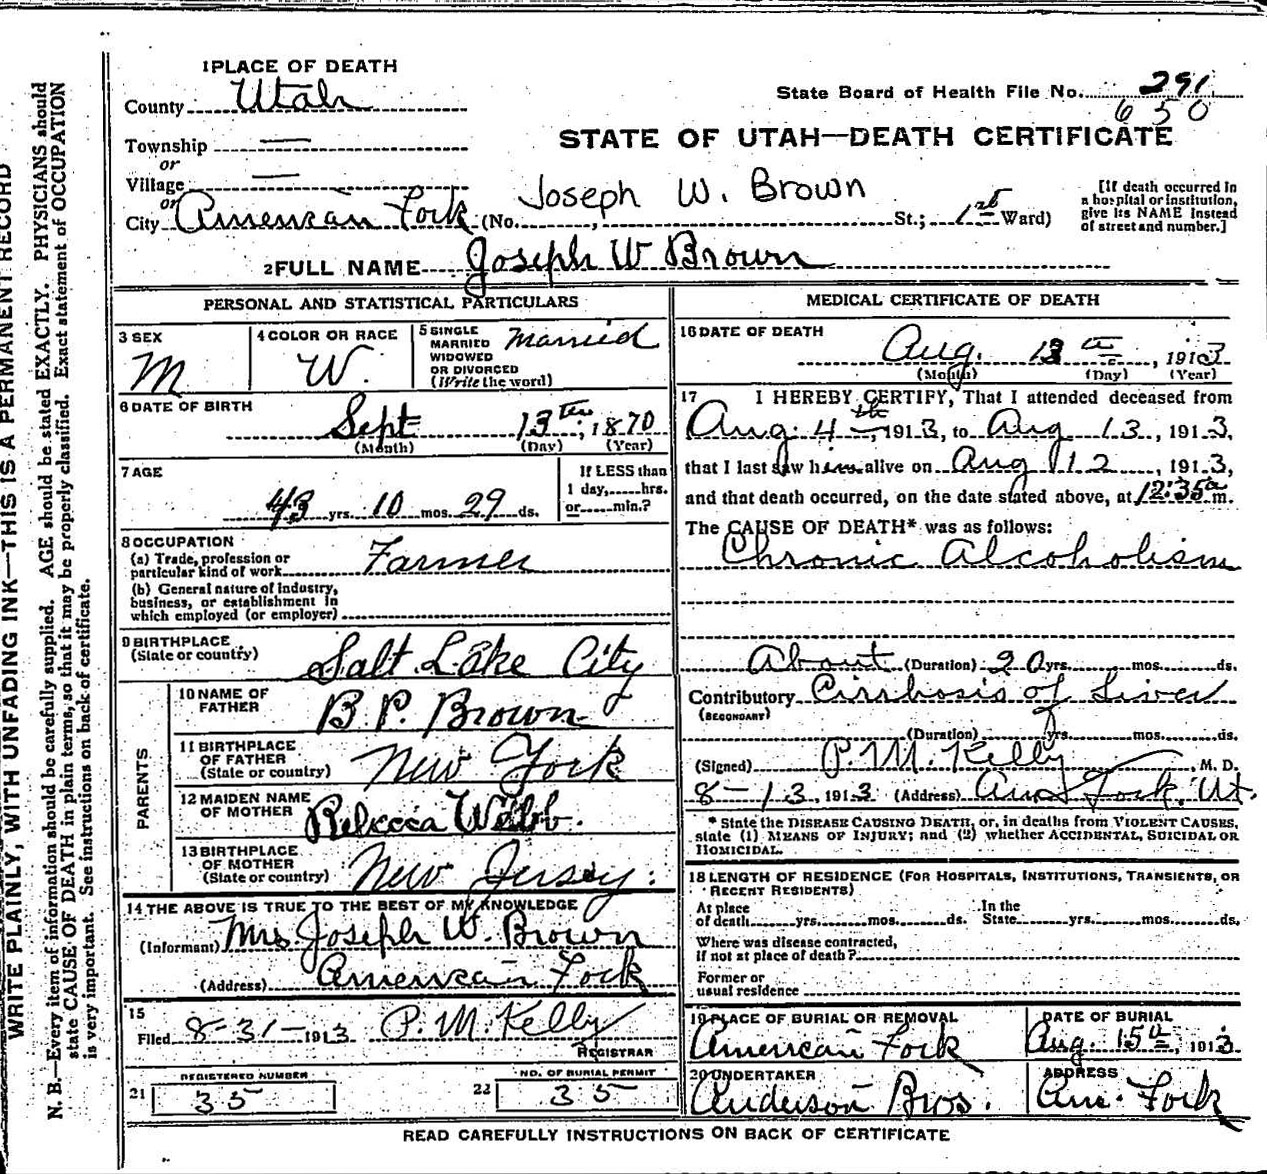 WRITE PLAINLY, WITH UNFADING INK—THIS IS A PERMANENT RECORD
N. B.—Every item of information should be carefully supplied. AGE should be stated EXACTLY. PHYSICIANS should
state CAUSE OF DEATH in plain terms, so that it may be properly classified. Exact statement of OCCUPATION
is very important. See instructions on back of certificate.
1 PLACE OF DEATH
County Utah
State Board of Health File No. 291
650
Township —
STATE OF UTAH—DEATH CERTIFICATE
or
Village —
or
Joseph W. Brown
City American Fork (No. , St.; 1st Ward)
[If death occurred in
a hospital or institution,
give its NAME instead
of street and number.]
2 FULL NAME Joseph W Brown
PERSONAL AND STATISTICAL PARTICULARS
3 SEX
M
4 COLOR OR RACE
W.
5 SINGLE
MARRIED
WIDOWED
OR DIVORCED
(Write the word)
Married
6 DATE OF BIRTH
Sept 13th, 1870
(Month) (Day) (Year)
7 AGE
43 yrs. 10 mos. 29 ds.
If LESS than
1 day, hrs.
or min.?
8 OCCUPATION
(a) Trade, profession or
particular kind of work Farmer
(b) General nature of industry,
business, or establishment in
which employed (or employer)
9 BIRTHPLACE
(State or country) Salt Lake City
PARENTS
10 NAME OF
FATHER B. P. Brown
11 BIRTHPLACE
OF FATHER
(State or country) New York
12 MAIDEN NAME
OF MOTHER Rebecca Webb.
13 BIRTHPLACE
OF MOTHER
(State or country) New Jersey.
14 THE ABOVE IS TRUE TO THE BEST OF MY KNOWLEDGE
(Informant) Mrs Joseph W. Brown
(Address) American Fork
15
Filed 8-31-1913 P. M. Kelly
REGISTRAR
21 REGISTERED NUMBER
35
22 NO. OF BURIAL PERMIT
35
MEDICAL CERTIFICATE OF DEATH
16 DATE OF DEATH
Aug. 13th, 1913
(Month) (Day) (Year)
17 I HEREBY CERTIFY, That I attended deceased from
Aug. 4th, 1913, to Aug 13, 1913,
that I last saw him alive on Aug 12, 1913,
and that death occurred, on the date stated above, at 12:35 a m.
The CAUSE OF DEATH* was as follows:
Chronic Alcoholism
About (Duration) 20 yrs. mos. ds.
Contributory Cirrhosis of Liver
(SECONDARY)
(Duration) yrs. mos. ds.
(Signed) P. M. Kelly M. D.
8-13, 1913 (Address) Am Fork, Ut.
* State the DISEASE CAUSING DEATH, or, in deaths from VIOLENT CAUSES,
state (1) MEANS OF INJURY; and (2) whether ACCIDENTAL, SUICIDAL OR
HOMICIDAL.
18 LENGTH OF RESIDENCE (FOR HOSPITALS, INSTITUTIONS, TRANSIENTS, OR
RECENT RESIDENTS)
At place
of death yrs. mos. ds. In the
State yrs. mos. ds.
Where was disease contracted,
if not at place of death?
Former or
usual residence
19 PLACE OF BURIAL OR REMOVAL
American Fork
DATE OF BURIAL
Aug. 15th, 1913
20 UNDERTAKER
Anderson Bros.
ADDRESS
Am. Fork
READ CAREFULLY INSTRUCTIONS ON BACK OF CERTIFICATE